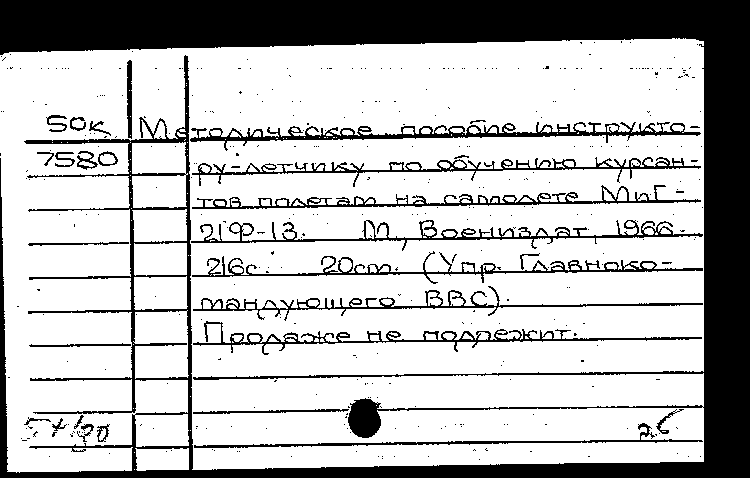 50к Методическое пособие инструкто-
7580 ру-летчику по обучению курсан-
тов полетам на самолете МиГ-
21Ф-13. М., Воениздат, 1966.
216с. 20см. (Упр. Главноко-
мандующего ВВС).
Продаже не подлежит.